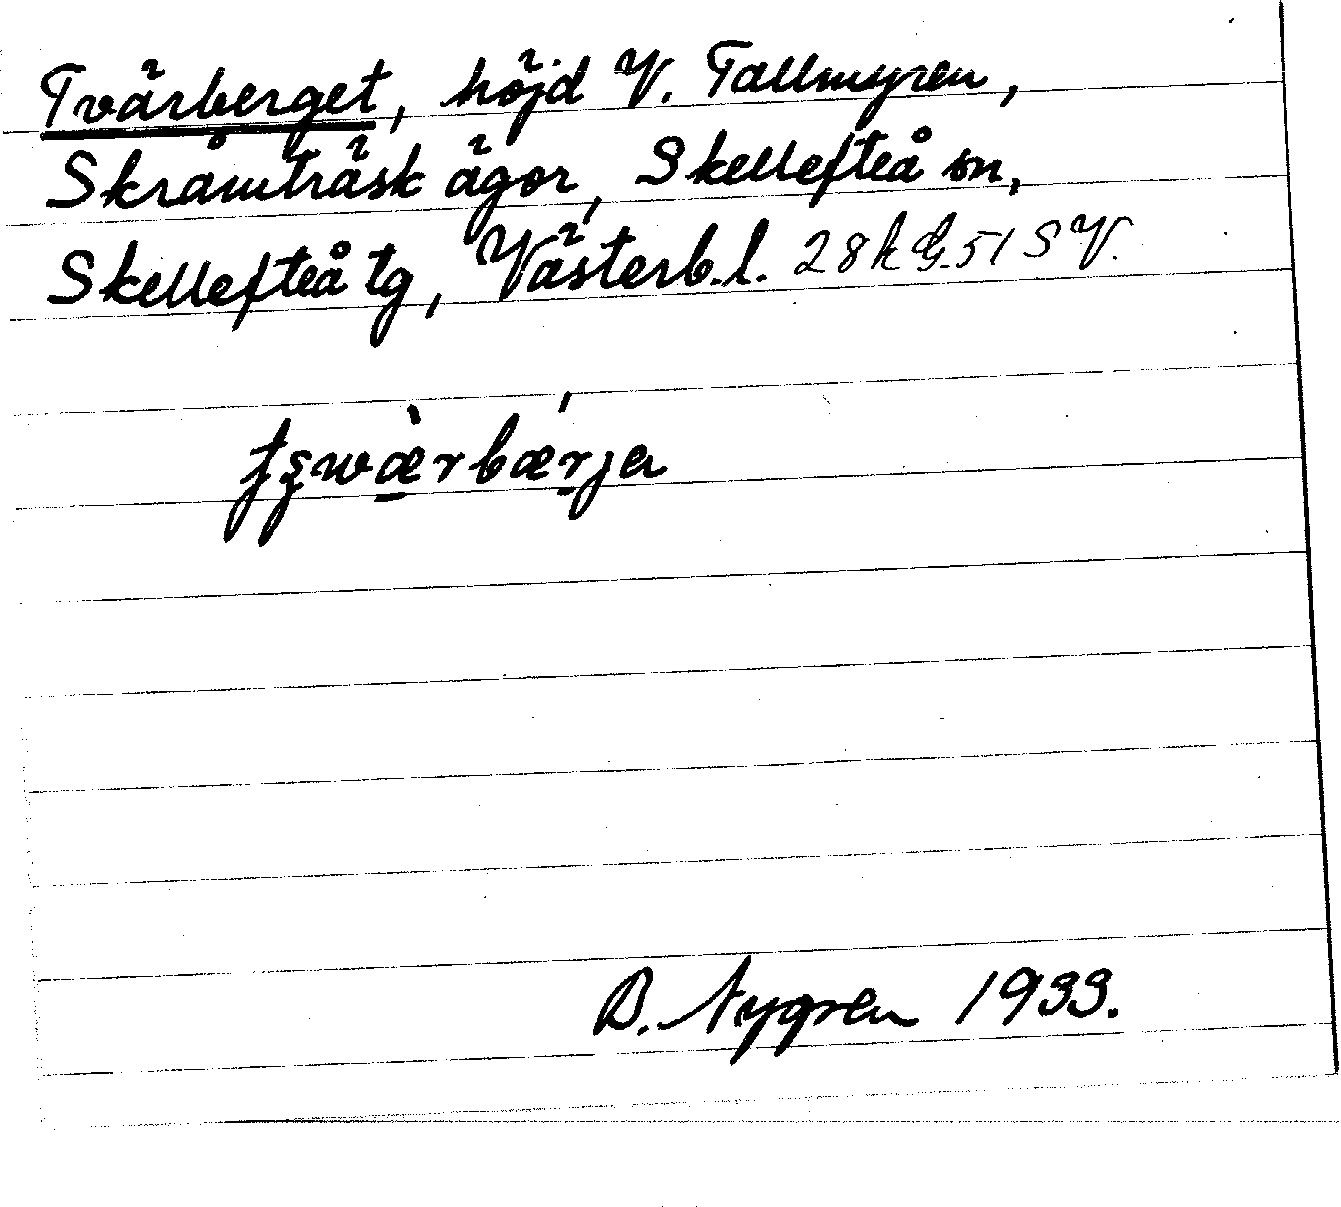 Tvärberget, höjd V. Tallmyren,
Skråmträsk ägor, Skellefteå sn,
Skellefteå tg, Västerb.l. 28kG.51SV.
B. Nygren 1933.